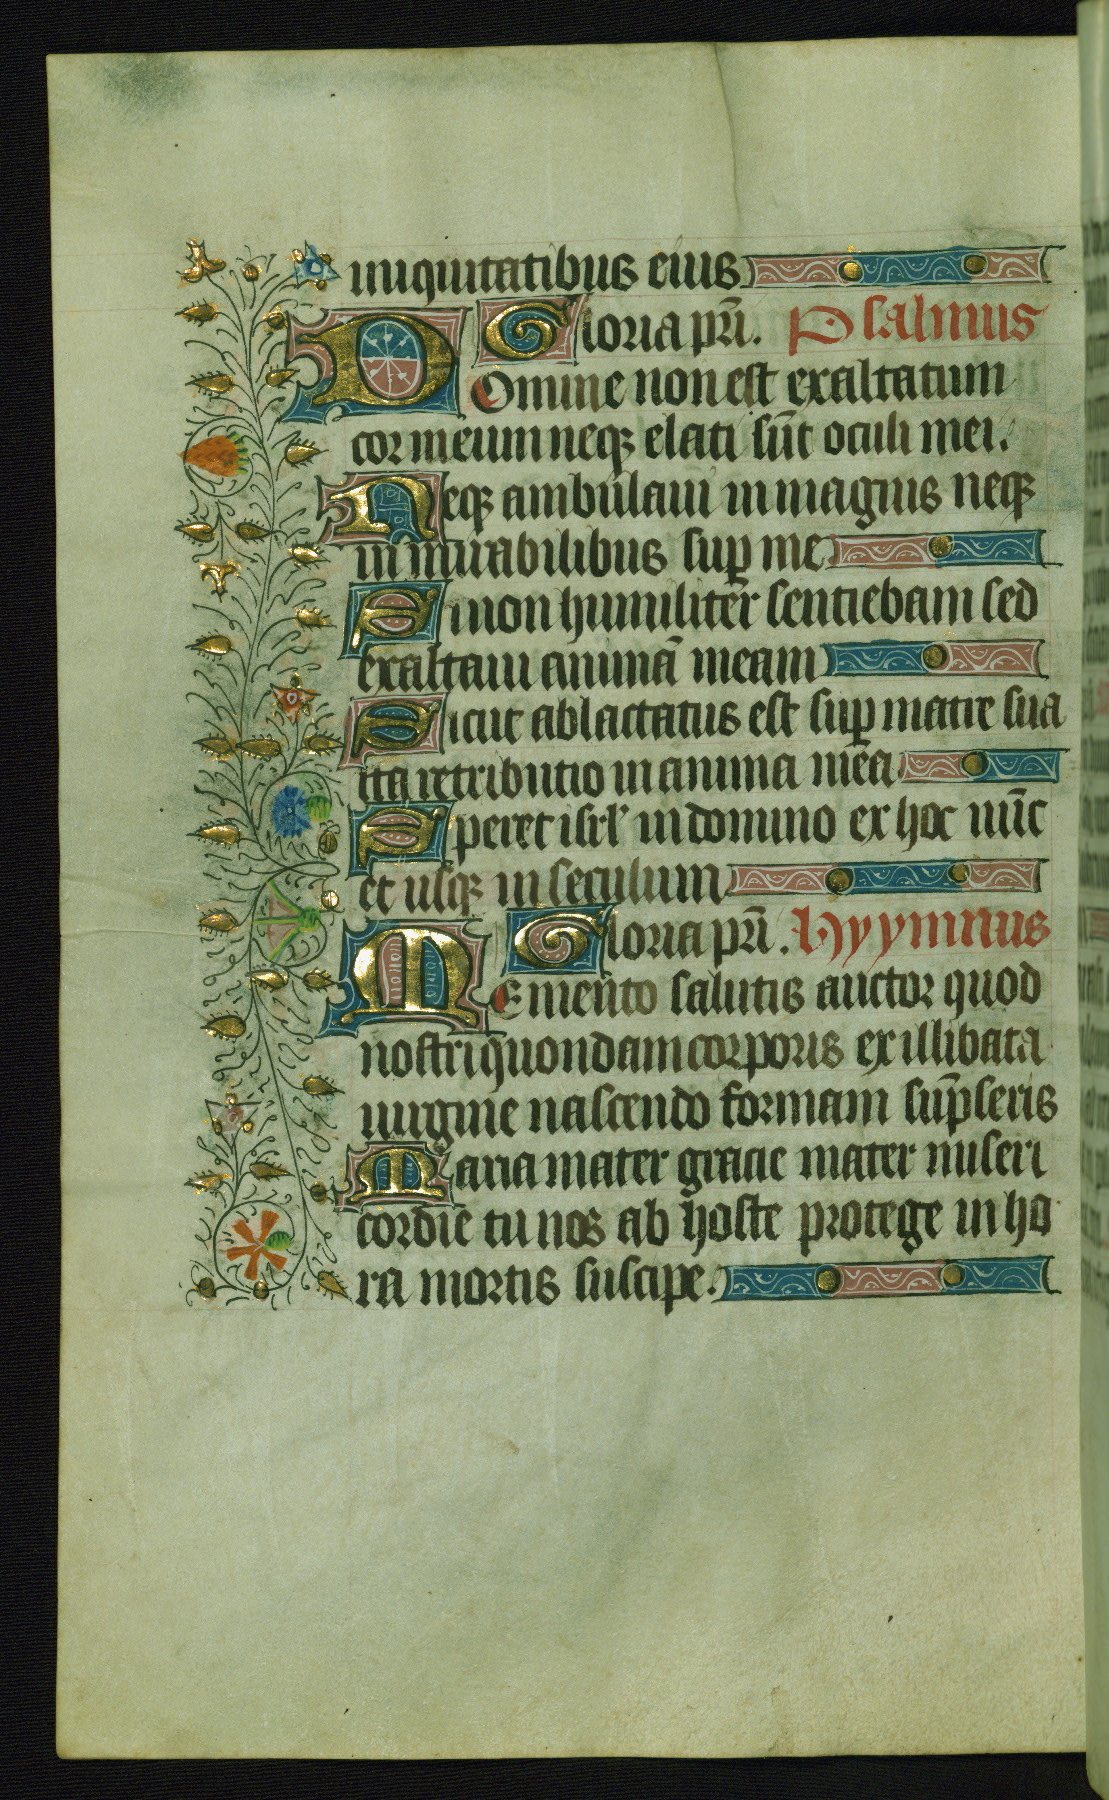 iniquitatibus eius
Gloria pr̄i. Psalmus
Domine non est exaltatum
cor meum neqꝫ elati sūt oculi mei.
Neqꝫ ambulaui in magnis neqꝫ
in mirabilibus suꝑ me
Si non humilit̄er sentiebam sed
exaltaui animā meam
Sicut ablactatus est suꝑ matre sua
ita retributio in anima mēa
Speret isrl' in domino ex hoc nūc
et usqꝫ in seculum
Gloria pr̄i. Hyymnus
Memēnto salutis auctor quod
nostri quondam corporis ex illibata
uirgine nascendo formam sūpseris
Maria mater gracie mater miseri
cordie tu nos ab hoste protege in ho
ra mortis suscipe.